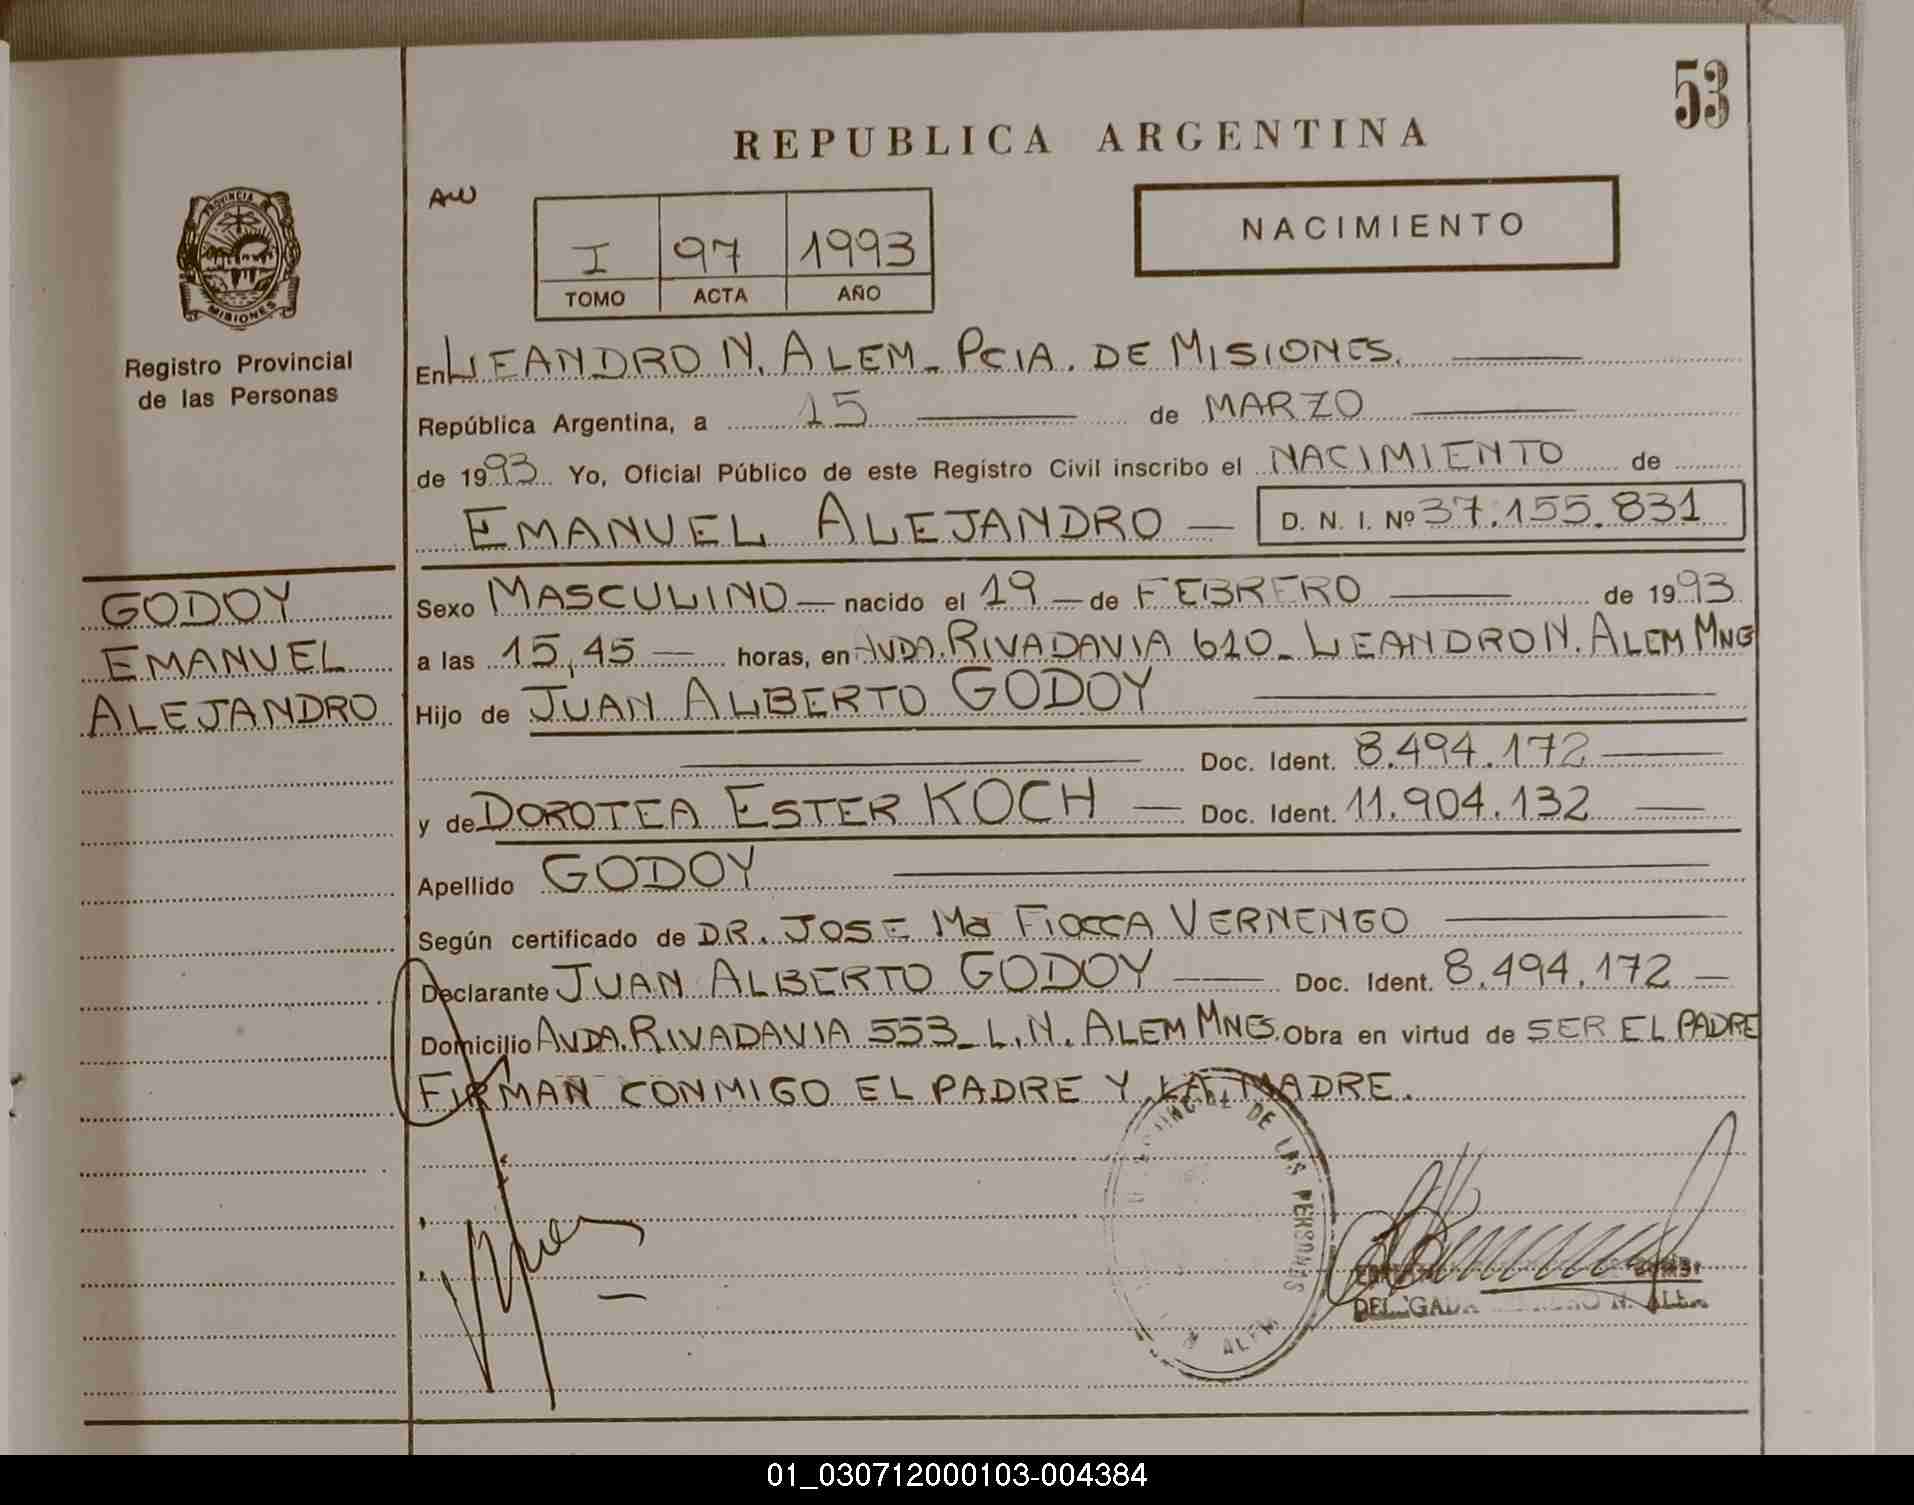 53
REPUBLICA ARGENTINA
PROVINCIA DE
MISIONES
Registro Provincial
de las Personas
I 97 1993
TOMO ACTA AÑO
NACIMIENTO
En LEANDRO N. ALEM - PCIA. DE MISIONES.
República Argentina, a 15 de MARZO
de 1993 Yo, Oficial Público de este Registro Civil inscribo el NACIMIENTO de
EMANUEL ALEJANDRO — D. N. I. Nº 37.155.831
GODOY
EMANUEL
ALEJANDRO
Sexo MASCULINO — nacido el 19 — de FEBRERO — de 1993
a las 15,45 — horas, en AVDA. RIVADAVIA 610 - LEANDRO N. ALEM MNES
Hijo de JUAN ALBERTO GODOY —
— Doc. Ident. 8.494.172 —
y de DOROTEA ESTER KOCH — Doc. Ident. 11.904.132 —
Apellido GODOY —
Según certificado de DR. JOSE Ma FIOCCA VERNENGO —
Declarante JUAN ALBERTO GODOY — Doc. Ident. 8.494.172 —
Domicilio AVDA. RIVADAVIA 553 - L. N. ALEM MNES. Obra en virtud de SER EL PADRE
FIRMAN CONMIGO EL PADRE Y LA MADRE.
DE LAS PERSONAS
ALEM
01_030712000103-004384